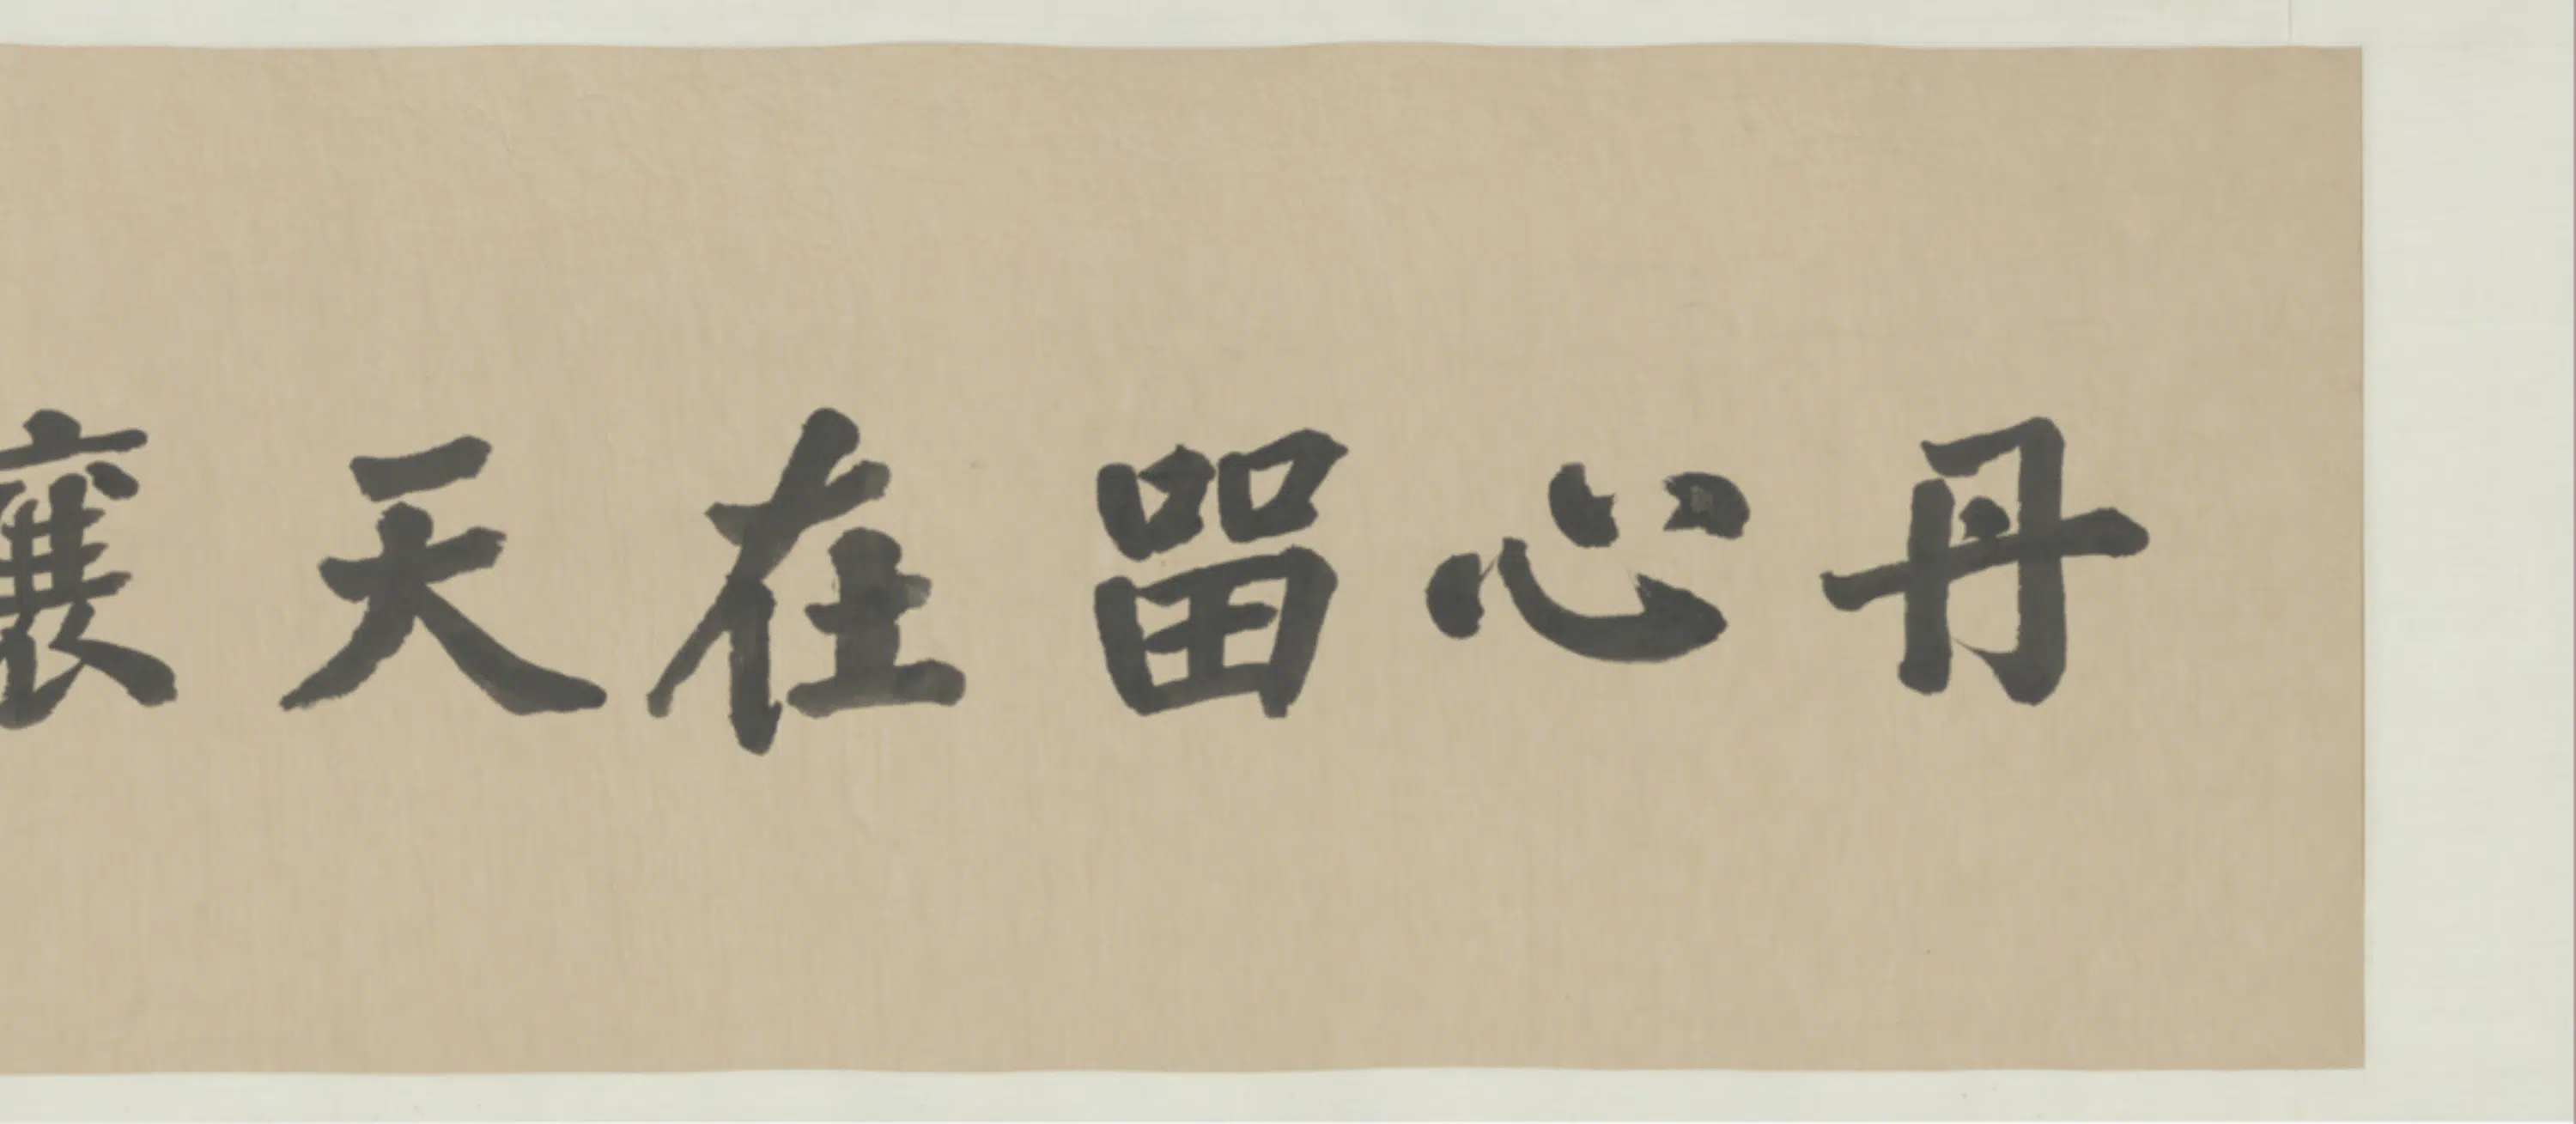 丹心留在天